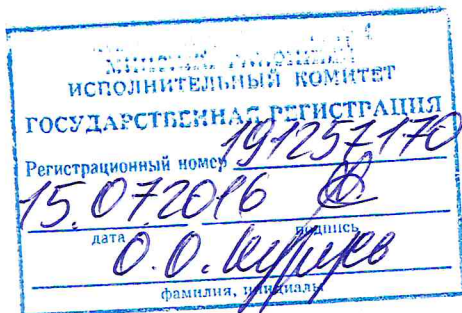 ИСПОЛНИТЕЛЬНЫЙ КОМИТЕТ
ГОСУДАРСТВЕННАЯ РЕГИСТРАЦИЯ
Регистрационный номер 191257170
15.07.2016
дата подпись
О.О.
фамилия, инициалы